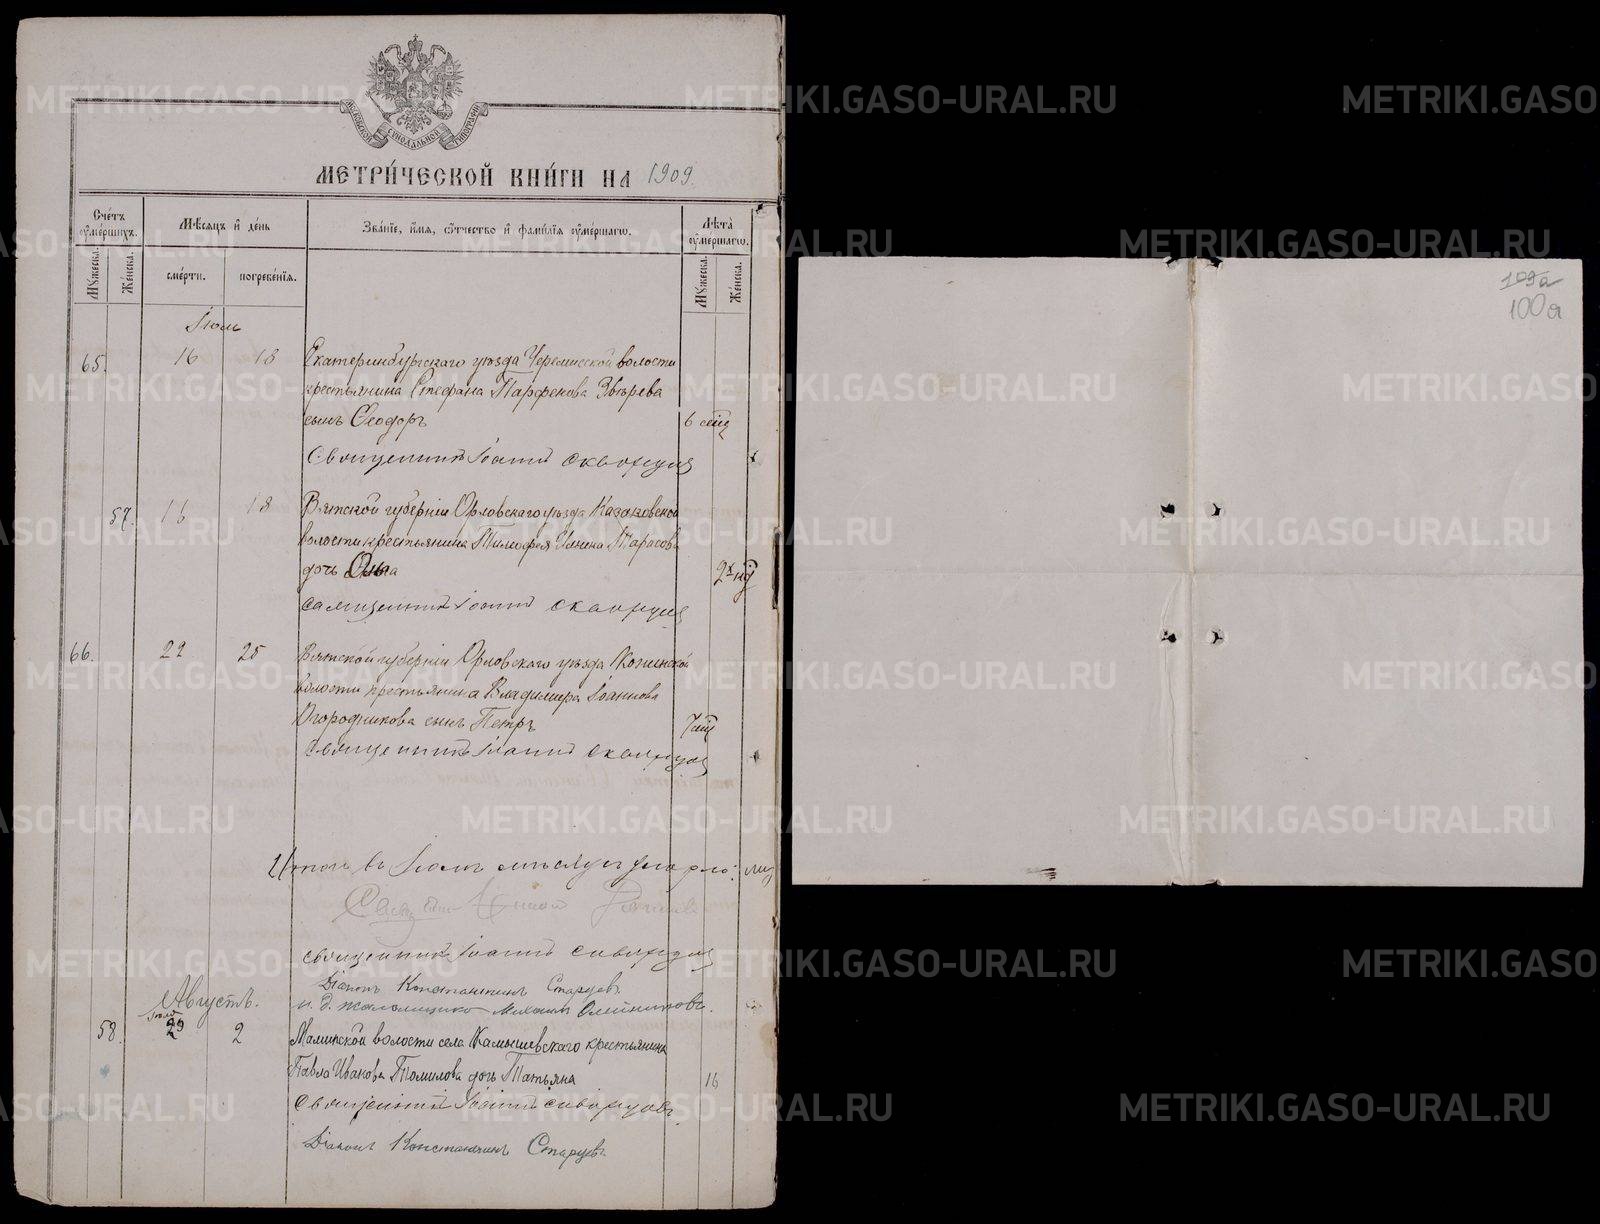 МОСКОВСКОЙ СѴНОДАЛЬНОЙ ТИПОГРАФІИ
МЕТРИ́ЧЕСКОЙ КНИ́ГИ НА 1909.
Сче́тъ ᲂу҆ме́ршихъ.
Мѣ́сяцъ и҆ де́нь
Зва́нїе, и҆́мя, ѻ҆́тчество и҆ фами́лїя ᲂу҆ме́ршагѡ.
Лѣ́та ᲂу҆ме́ршагѡ.
Мꙋ́жеска.
Же́нска.
сме́рти.
погребе́нїя.
Мꙋ́жеска.
Же́нска.
Іюль
65. 16 18 Екатеринбургскаго уѣзда Черемисской волости
крестьянина Стефана Парфенова Звѣрева
сынъ Ѳеодоръ 6 мѣц
Священникъ Іоаннъ Скворцовъ
57. 16 18 Вятской губерніи Орловскаго уѣзда Казаковской
волости крестьянина Тимофея Ильина Тарасова
дочь Ольга 2х нд
Священникъ Іоаннъ Скворцовъ
66. 22 25 Вятской губерніи Орловскаго уѣзда
волости крестьянина Владимира Іоаннова
Огородникова сынъ Петръ 7 мц
Священникъ Іоаннъ Скворцовъ
Итого въ Іюлѣ мѣсяцѣ умерло:
Священникъ Іоаннъ Скворцовъ
Діаконъ Константинъ Старцевъ
и. д. псаломщика Михаилъ Олейниковъ.
Августъ.
58. Іюля 29 2 Маминской волости села Камышевскаго крестьянина
Павла Иванова Томилова дочь Татьяна 16
Священникъ Іоаннъ Скворцовъ
Діаконъ Константинъ Старцевъ
109а
100а
METRIKI.GASO-URAL.RU